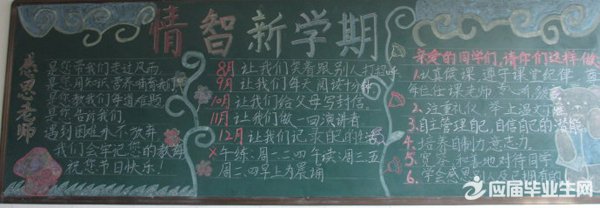 情智新学期
感恩老师
是您带我们走过风雨
是您用知识营养哺育我们
是您教我们学道做
是您告诉我们
遇到困难不放弃
我们会牢记您的教
祝您节日快乐!
8月 让我们笑着跟别人打招呼
9月 让我们每天阅读十分钟
10月 让我们给父母写封信
11月 让我们做一回演讲者
12月 让我们记录自己的生活
午练:周一二四 午读:周三五
周二四早上为晨诵
亲爱的同学们,请你们这样做
1.认真听课 遵守课堂纪律
任课老师
2.注重礼仪 学上温文
3.自主管理自己,自信自己的潜能
4.培养自制力意志力
5.宽容和善地对待同学
6.学会感恩 拥有的
应届毕业生网